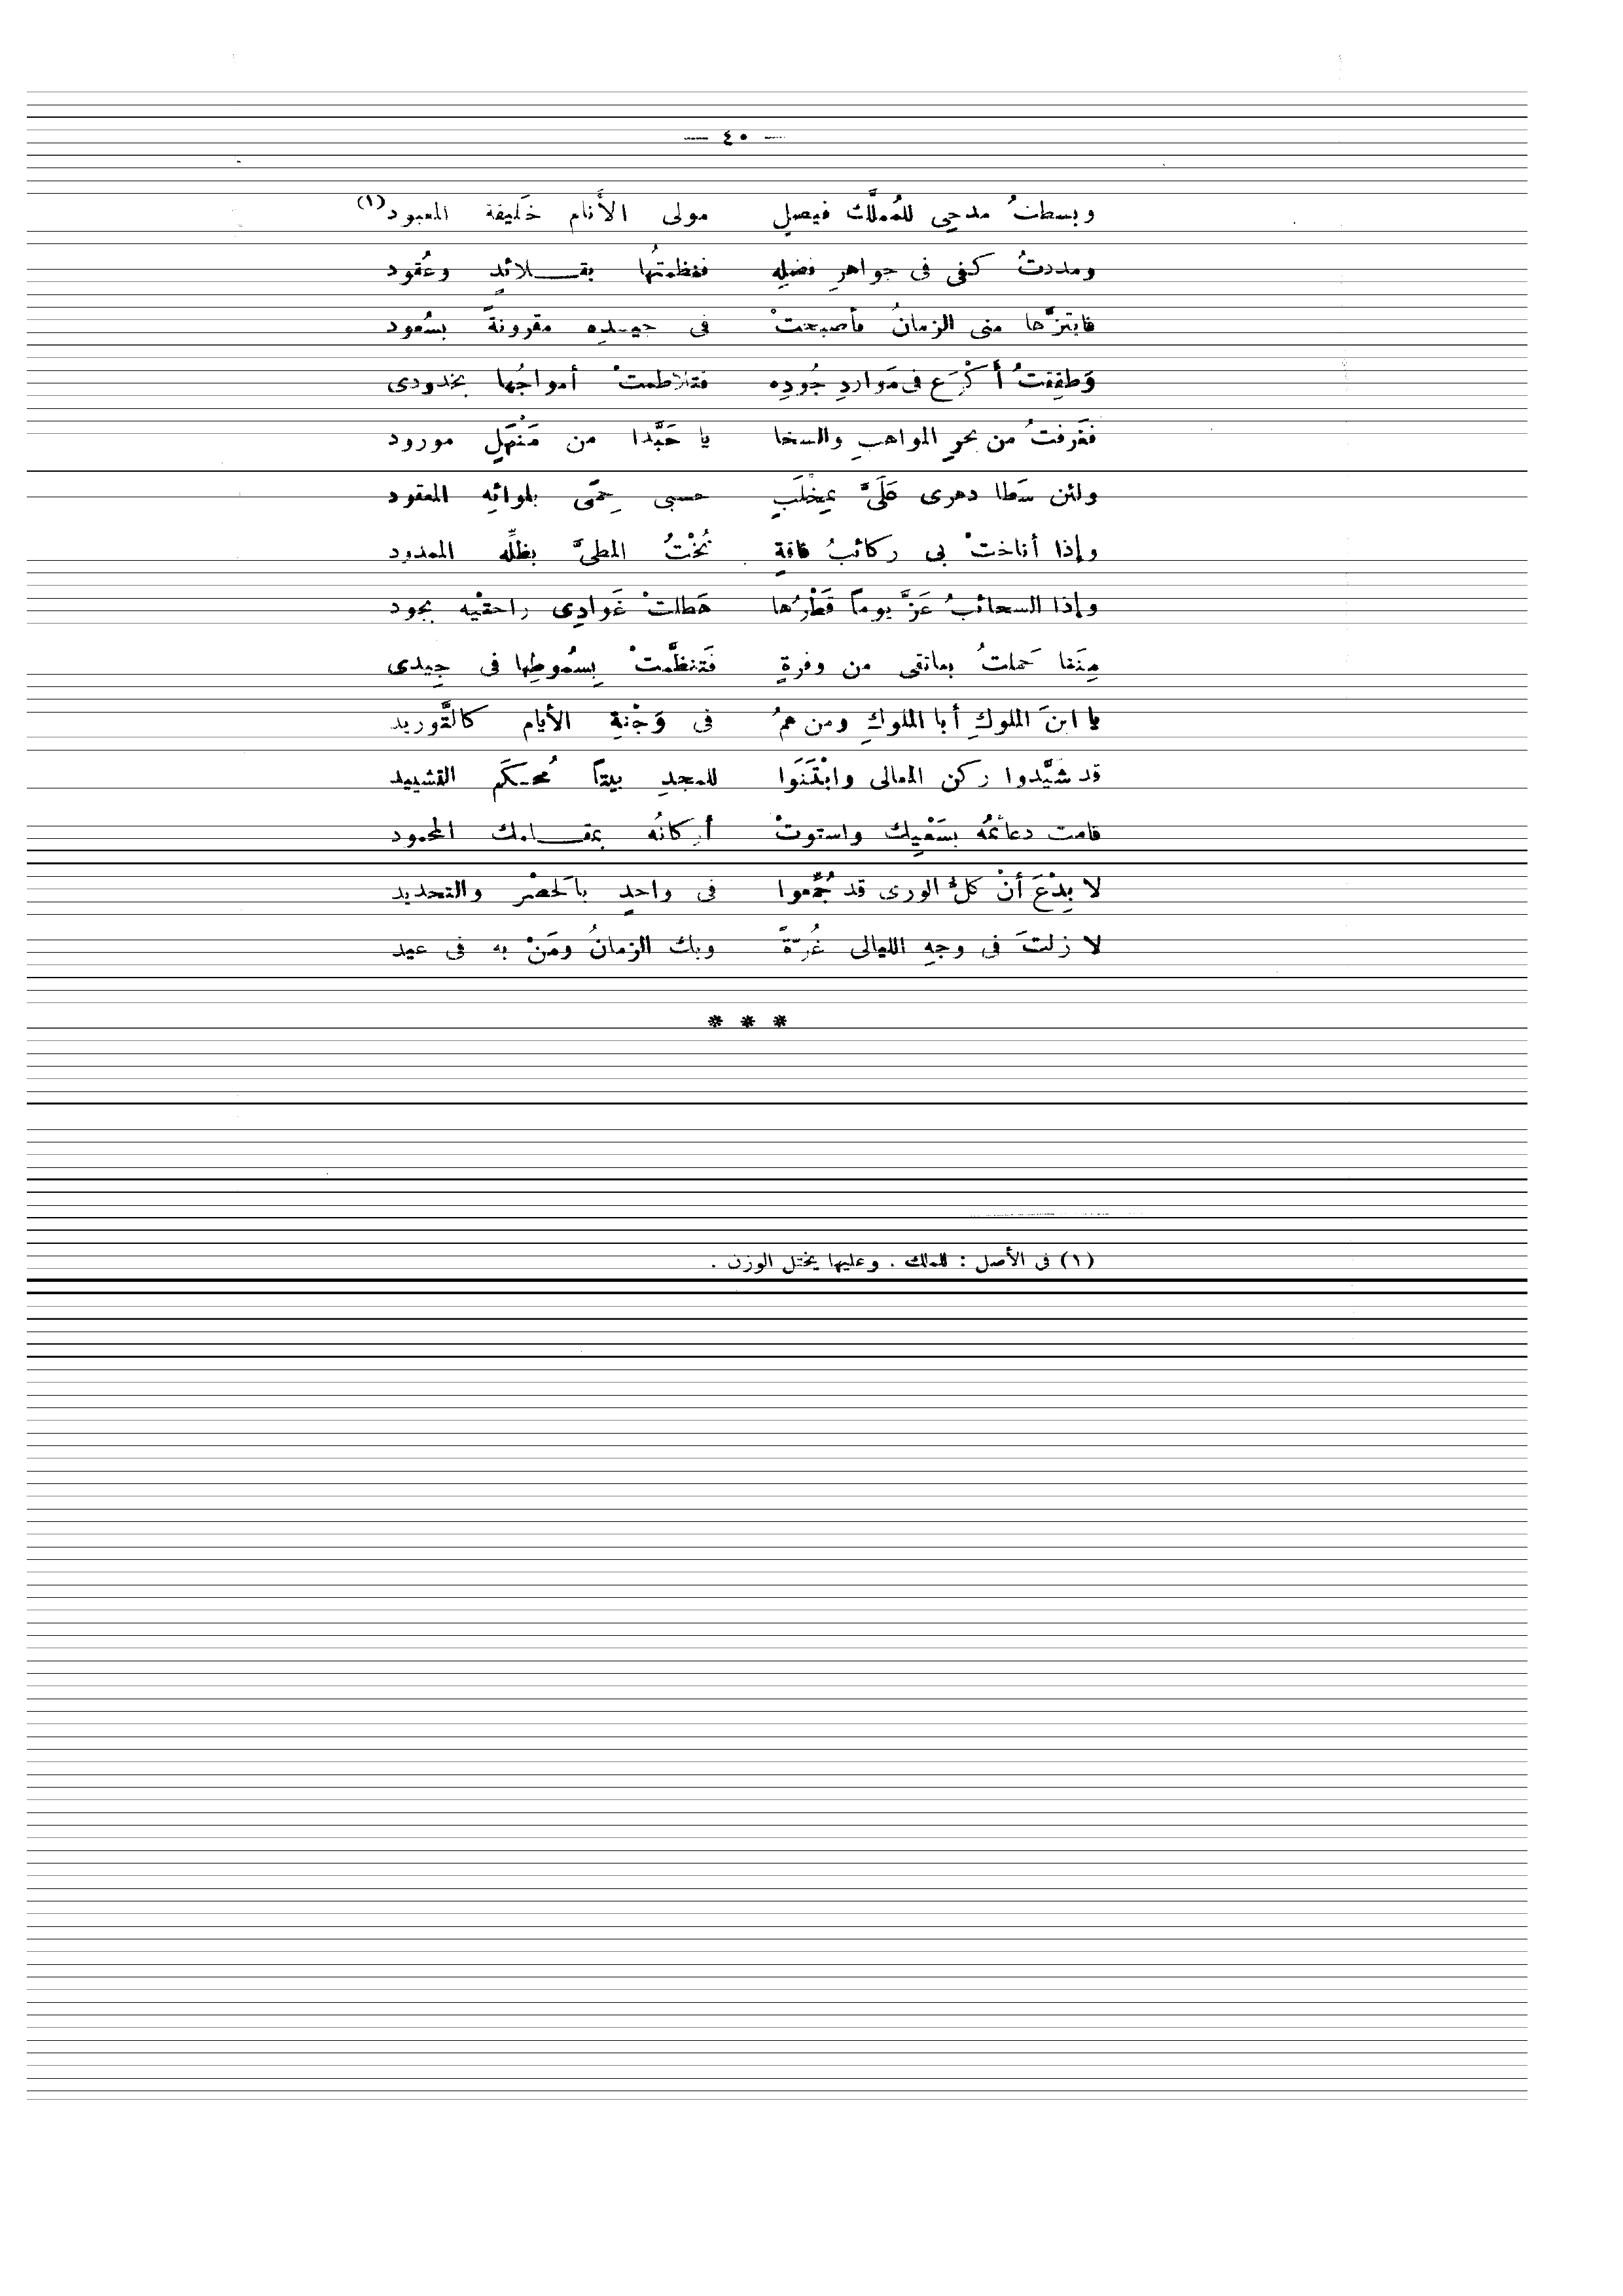 — ٤٠ —
وبسطتُ مدحِى للمُملَّك فيصلٍ مولى الأَنام خَليفة المعبود(١)
ومددتُ كفى فى جواهرِ فضلِه فنظمتُها بقـلائدٍ وعُقود
فابتزَّها منى الزمانُ فأصبحتْ فى جيـدِه مقرونةً بسُعود
وَطفِقتُ أَكْرَع فى مَواردِ جُودِه فتلاطمتْ أمواجُها بخدودى
فغَرفتُ من بحرِ المواهبِ والسخا يا حَبَّدا من مَنْهَلٍ مورود
ولئن سَطا دهرى عَلَىَّ بمِخْلَبٍ حسبى حِمًى بلوائِه المعقود
وإذا أناختْ بى ركائبُ فاقةٍ نُخْتُ المطىَّ بظلِّه الممدود
وإذا السحائبُ عَزَّ يوماً قَطْرُها هَطلتْ غَوادِى راحتيْه بجود
مِنَنا حَملتُ بعاتقى من وفرةٍ فَتنظَّمتْ بِسُموطِها فى جِيدى
يا ابنَ الملوكِ أبا الملوكِ ومن همُ فى وَجْنةِ الأيام كالتَّوريد
قد شيَّدوا ركن المعالى وابْتَنَوا للمجدِ بيتاً مُحـكَم التشييد
قامت دعائمُه بسَعْيِك واستوتْ أركانُه بمقـامك المحمود
لا بِدْعَ أنْ كلُّ الورى قد جُمِّعوا فى واحدٍ بالَحصْر والتحديد
لا زلتَ فى وجهِ الليالى غُرّةً وبك الزمانُ ومَنْ به فى عيد
* * *
(١) فى الأصل : للملك . وعليها يختل الوزن .